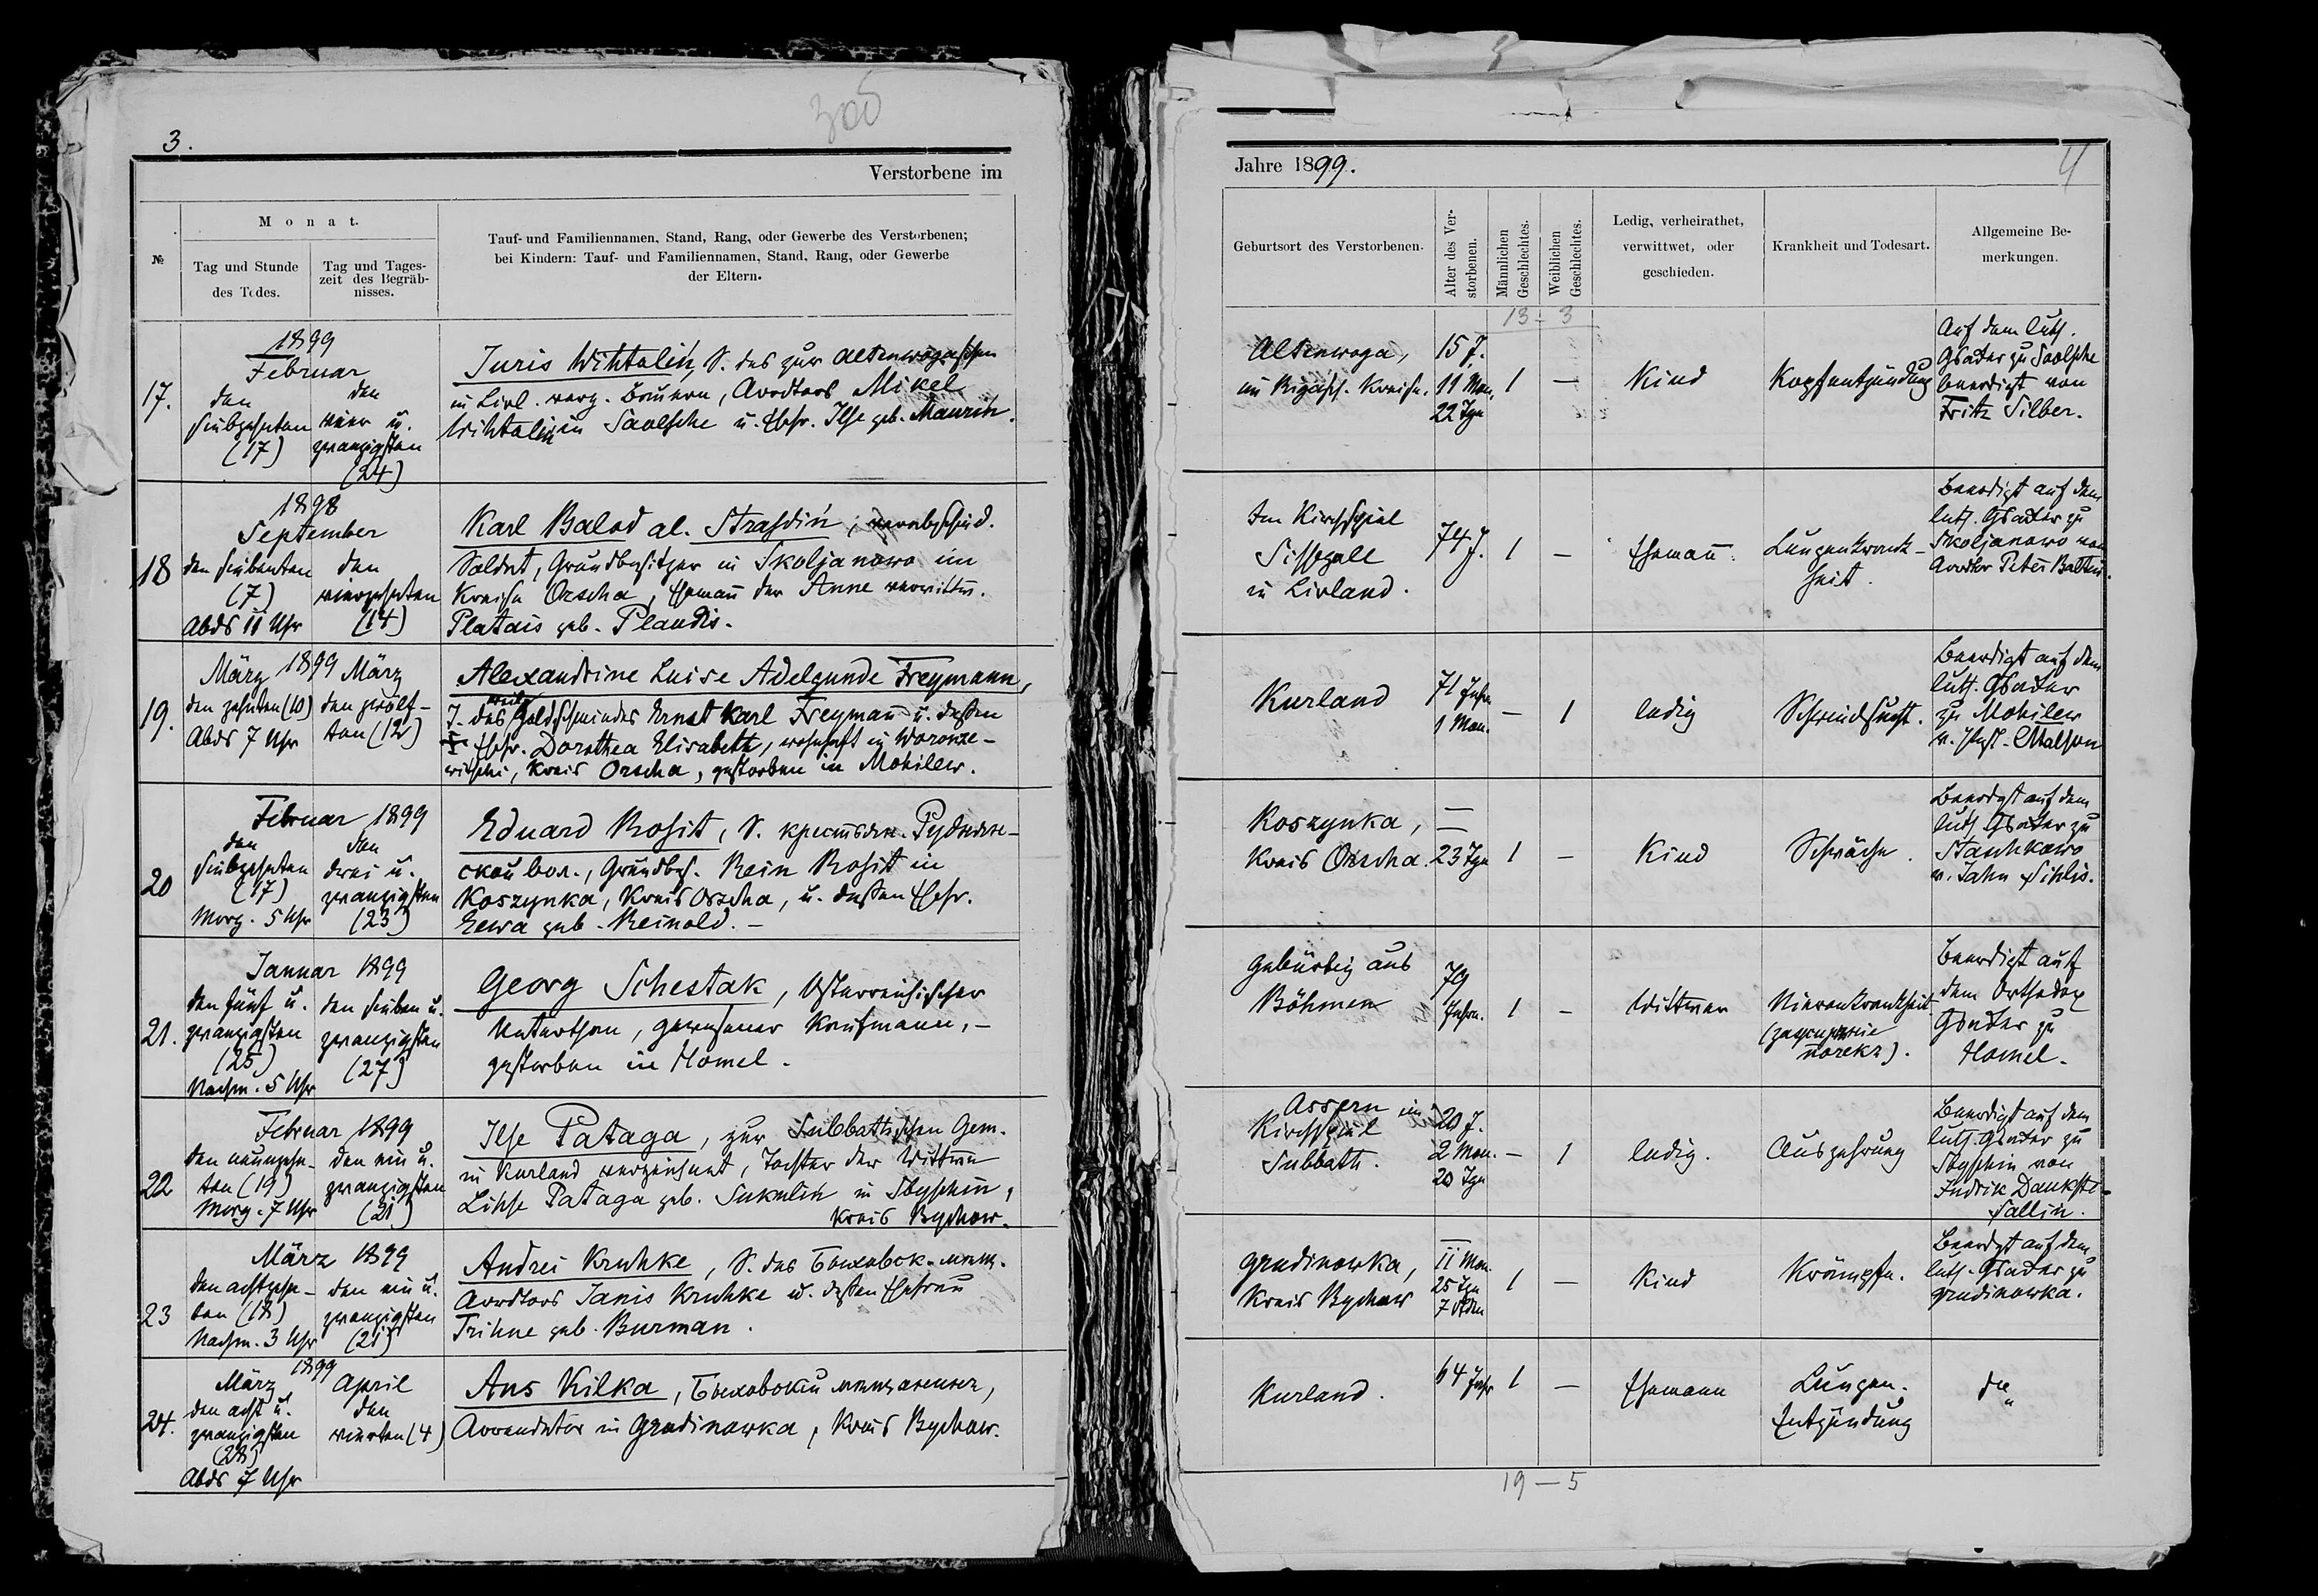 300
3.
Verstorbene im
№
Monat.
Tag und Stunde
des Todes.
Tag und Tages-
zeit des Begräb-
nisses.
Tauf- und Familiennamen, Stand, Rang, oder Gewerbe des Verstorbenen;
bei Kindern: Tauf- und Familiennamen, Stand, Rang, oder Gewerbe
der Eltern.
17.
1899
Februar
den
siebzehnten
(17)
den
vier u.
zwanzigsten
(24)
Juris Wihtolin, S. des zur Altenwogaschen
in Livl. verz. Bauern, Arrdtors Mikel
Wihtolin in Saolsche u. Ehfr. Ilse geb. Maurin.
18
1898
September
den siebenten
(7)
Abds 11 Uhr
den
vierzehnten
(14)
Karl Balod al. Strasdin, verabschied.
Soldat, Grundbesitzer in Skoljanowo im
Kreise Orscha, Ehemann der Anne verwittw.
Platais geb. Plaudis.
19.
März 1899 März
den zehnten (10)
Abds 7 Uhr
den zwölf-
ten (12)
Alexandrine Luise Adelgunde Freymann,
T. des Goldschmiedes Ernst Karl Freymann u. dessen
Ehfr. Dorothea Elisabeth, wohnhaft in Woronze-
witschi, Kreis Orscha, gestorben in Mohilew.
20
Februar 1899
den
siebzehnten
(17)
Morg. 5 Uhr
den
drei u.
zwanzigsten
(23)
Eduard Rosit, S. крестьян. Рудня-
ской вол., Grundbes. Rein Rosit in
Koszynka, Kreis Orscha, u. dessen Ehfr.
Eewa geb. Reinold. –
21.
Januar 1899
den fünf u.
zwanzigsten
(25)
Nachm. 5 Uhr
den sieben u.
zwanzigsten
(27)
Georg Schestak, Österreichischer
Unterthan, gewesener Kaufmann, –
gestorben in Homel.
22
Februar 1899
den neunzehn-
ten (19)
Morg. 7 Uhr
den ein u.
zwanzigsten
(21)
Ilse Pataga, zur Subbathschen Gem.
in Kurland verzeichnet, Tochter der Wittwe
Lihse Pataga geb. Sukulin in Sbyschin,
Kreis Bychow.
23
März 1899
den achtzehn-
ten (18)
Nachm. 3 Uhr
den ein u.
zwanzigsten
(21)
Andrei Kruhke, S. des Быховск. мещ.
Arrdtors Janis Kruhke u. dessen Ehefrau
Trihne geb. Burman.
24.
März 1899 April
den acht u.
zwanzigsten
(28)
Abds 7 Uhr
den
vierten (4)
Ans Kilka, Быховский мещанинъ,
Arrendator in Grudinowka, Kreis Bychow.
Jahre 1899.
4
Geburtsort des Verstorbenen.
Alter des Ver-
storbenen.
Männlichen
Geschlechtes.
Weiblichen
Geschlechtes.
Ledig, verheirathet,
verwittwet, oder
geschieden.
Krankheit und Todesart.
Allgemeine Be-
merkungen.
13 – 3
Altenwoga,
im Rigasch. Kreise.
15 J.
11 Mon.
22 Tge
1
–
Kind
Kopfentzündung
Auf dem luth.
Gsacker zu Saolsche
beerdigt von
Fritz Silber.
Im Kirchspiel
Sissegall
in Livland.
74 J.
1
–
Ehemann.
Lungenkrank-
heit.
Beerdigt auf dem
luth. Gsacker zu
Skoljanowo von
Arrdtor Peter
Kurland
71 Jahre
1 Mon.
–
1
ledig
Schwindsucht.
Beerdigt auf dem
luth. Gsacker
zu Mohilew
Koszynka,
Kreis Orscha.
–
–
23 Tge
1
–
Kind
Schwäche.
Beerdigt auf dem
luth. Gsacker zu
Staschkowo
v. Jahn Sihlis.
Gebürtig aus
Böhmen
79
Jahre.
1
–
Wittwer
Nierenkrankheit
Beerdigt auf
dem Orthodox
Gsacker zu
Homel.
Assern im
Kirchspiel
Subbath.
20 J.
2 Mon.
20 Tge
–
1
ledig.
Auszehrung
Beerdigt auf dem
luth. Gsacker zu
Sbyschin von
Indrik Daukste-
Sallin.
Grudinowka,
Kreis Bychow
–
11 Mon.
25 Tge
7 Stdn
1
–
Kind
Krämpfe.
Beerdigt auf dem
luth. Gsacker zu
Grudinowka.
Kurland.
64 Jahr
1
–
Ehemann
Lungen-
Entzündung
do
19 – 5